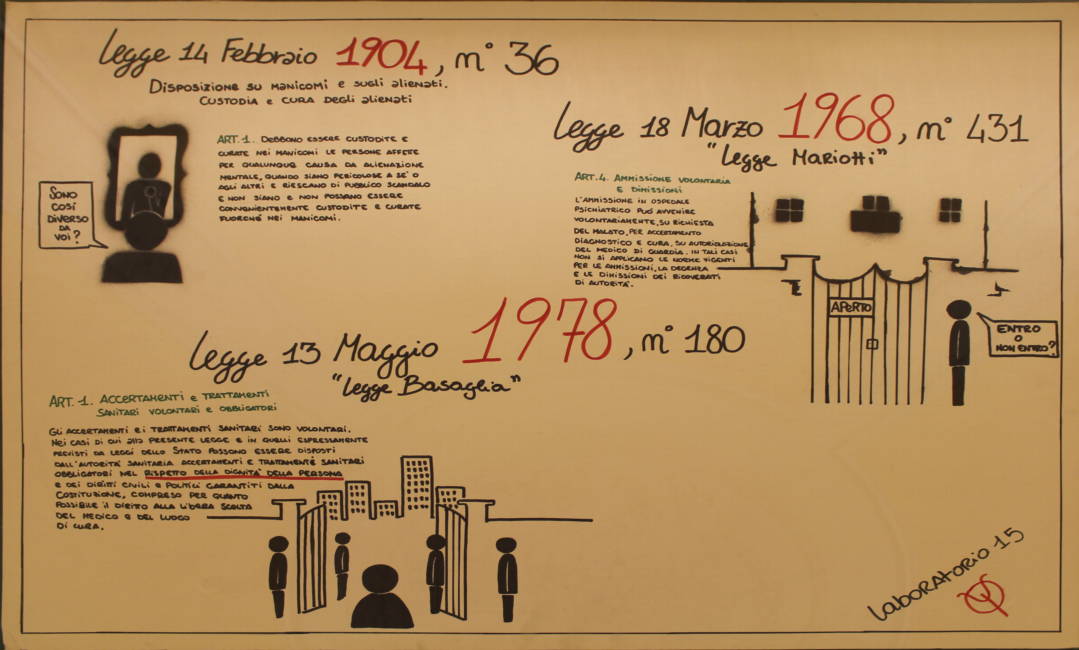 Legge 14 Febbraio 1904, n° 36
Disposizione su manicomi e sugli alienati.
Custodia e cura degli alienati
ART. 1. Debbono essere custodite e
curate nei manicomi le persone affete
per qualunque causa da alienazione
mentale, quando siano pericolose a sè o
agli altri e riescano di pubblico scandalo
e non siano e non possano essere
convenientemente custodite e curate
fuorchè nei manicomi.
Sono
così
diverso
da
voi?
Legge 18 Marzo 1968, n° 431
"Legge Mariotti"
ART. 4. Ammissione volontaria
e dimissioni
L'ammissione in ospedale
psichiatrico può avvenire
volontariamente, su richiesta
del malato, per accertamento
diagnostico e cura, su autorizzazione
del medico di guardia. In tali casi
non si applicano le norme vigenti
per le ammissioni, la degenza
e le dimissioni dei ricoverati
di autorità.
APERTO
ENTRO
O
NON ENTRO?
Legge 13 Maggio 1978, n° 180
"Legge Basaglia"
ART. 1. Accertamenti e trattamenti
sanitari volontari e obbligatori
Gli accertamenti e i trattamenti sanitari sono volontari.
Nei casi di cui alla presente legge e in quelli espressamente
previsti da leggi dello Stato possono essere disposti
dall'autorità sanitaria accertamenti e trattamenti sanitari
obbligatori nel rispetto della dignità della persona
e dei diritti civili e politici garantiti dalla
Costituzione, compreso per quanto
possibile il diritto alla libera scelta
del medico e del luogo
di cura.
Laboratorio 15